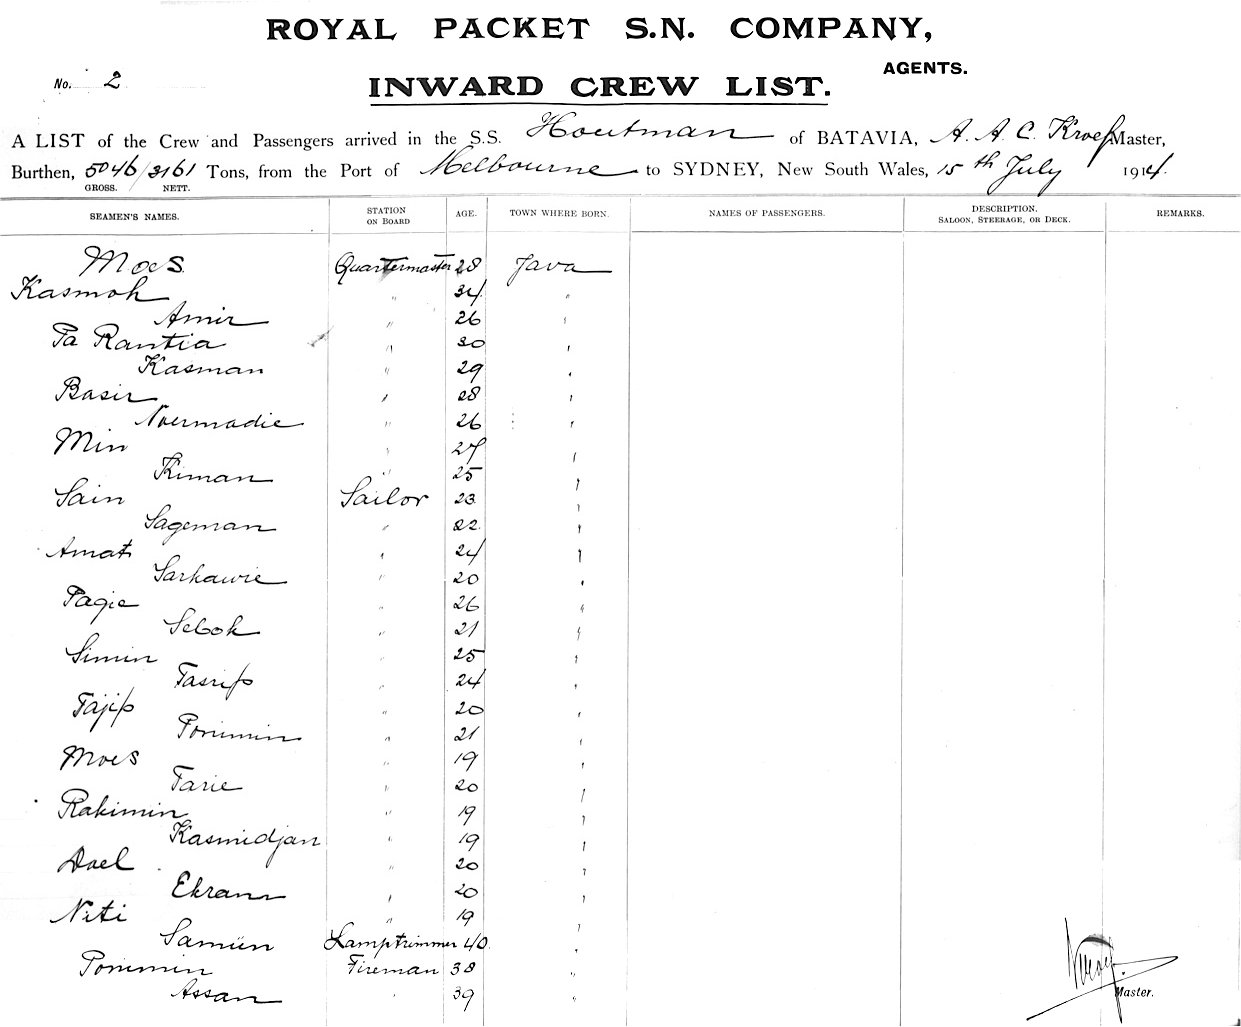 ROYAL PACKET S.N. COMPANY,
AGENTS.
No. 2
INWARD CREW LIST.
A LIST of the Crew and Passengers arrived in the S.S. Houtman of BATAVIA, A. A. C. Kroef Master,
Burthen, 5046/3161 Tons, from the Port of Melbourne to SYDNEY, New South Wales, 15th July 1914.
GROSS. NETT.
SEAMEN'S NAMES. STATION ON BOARD AGE. TOWN WHERE BORN. NAMES OF PASSENGERS. DESCRIPTION. SALOON, STEERAGE, OR DECK. REMARKS.
Moes Quartermaster 28 Java
Kasmoh " 34 "
Amir " 26 "
Pa Rantia " 30 "
Kasman " 29 "
Basir " 28 "
Noermadie " 26 "
Min " 27 "
Kiman " 25 "
Sain Sailor 23 "
Sageman " 22 "
Amat " 24 "
Sarkawie " 20 "
Pagie " 26 "
Sebok " 21 "
Simin " 25 "
Tasrip " 24 "
Tajip " 20 "
Ponimin " 21 "
Moes " 19 "
Tarie " 20 "
Rakimin " 19 "
Kasmidjan " 19 "
Doel " 20 "
Ekram " 20 "
Niti " 19 "
Samiin Lamptrimmer 40 "
Ponimin Fireman 38 "
Assan " 39 "
Kroef
Master.